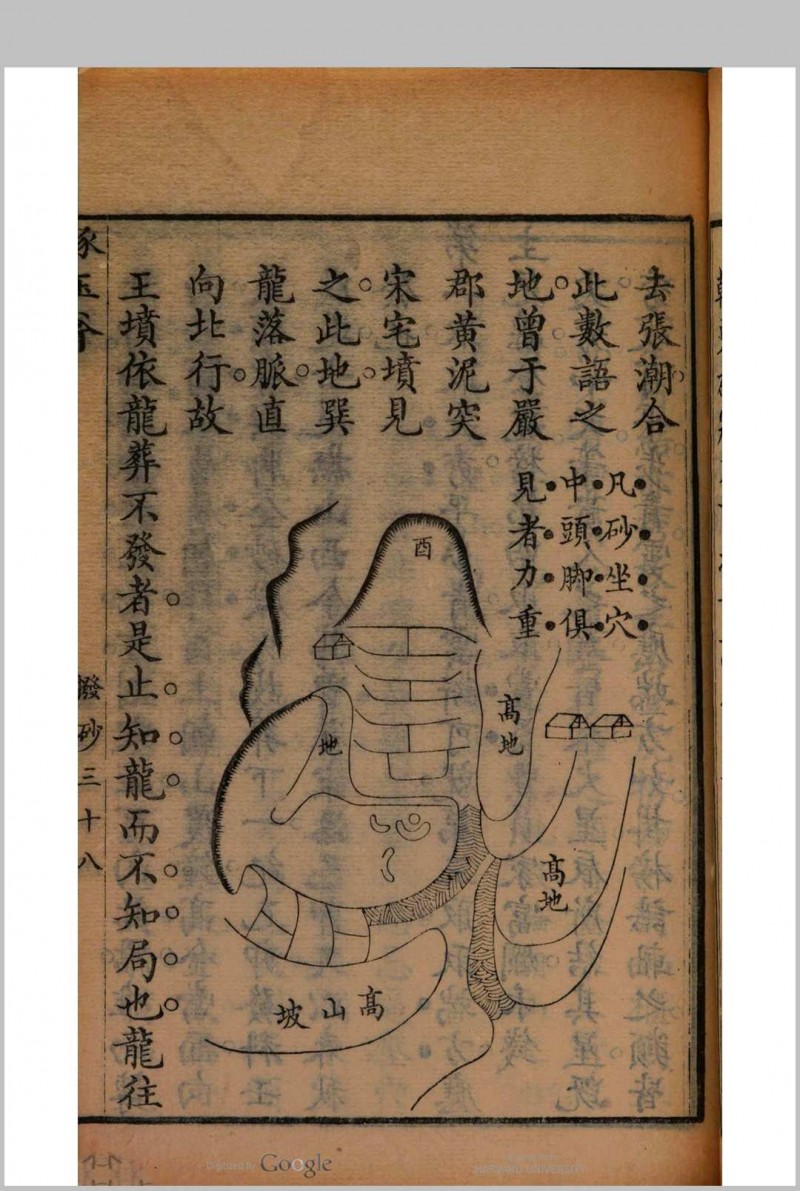 去張潮合
此數語之
地曾于嚴
郡黃泥突
宋宅墳見
之此地巽
龍落脈直
向北行故
王墳依龍葬不發者是止知龍而不知局也龍往
凡砂坐穴
中頭脚俱
見者力重
酉
高地
地
高地
高山坡
撥砂三十八
Digitized by Google
HARVARD UNIVERSITY